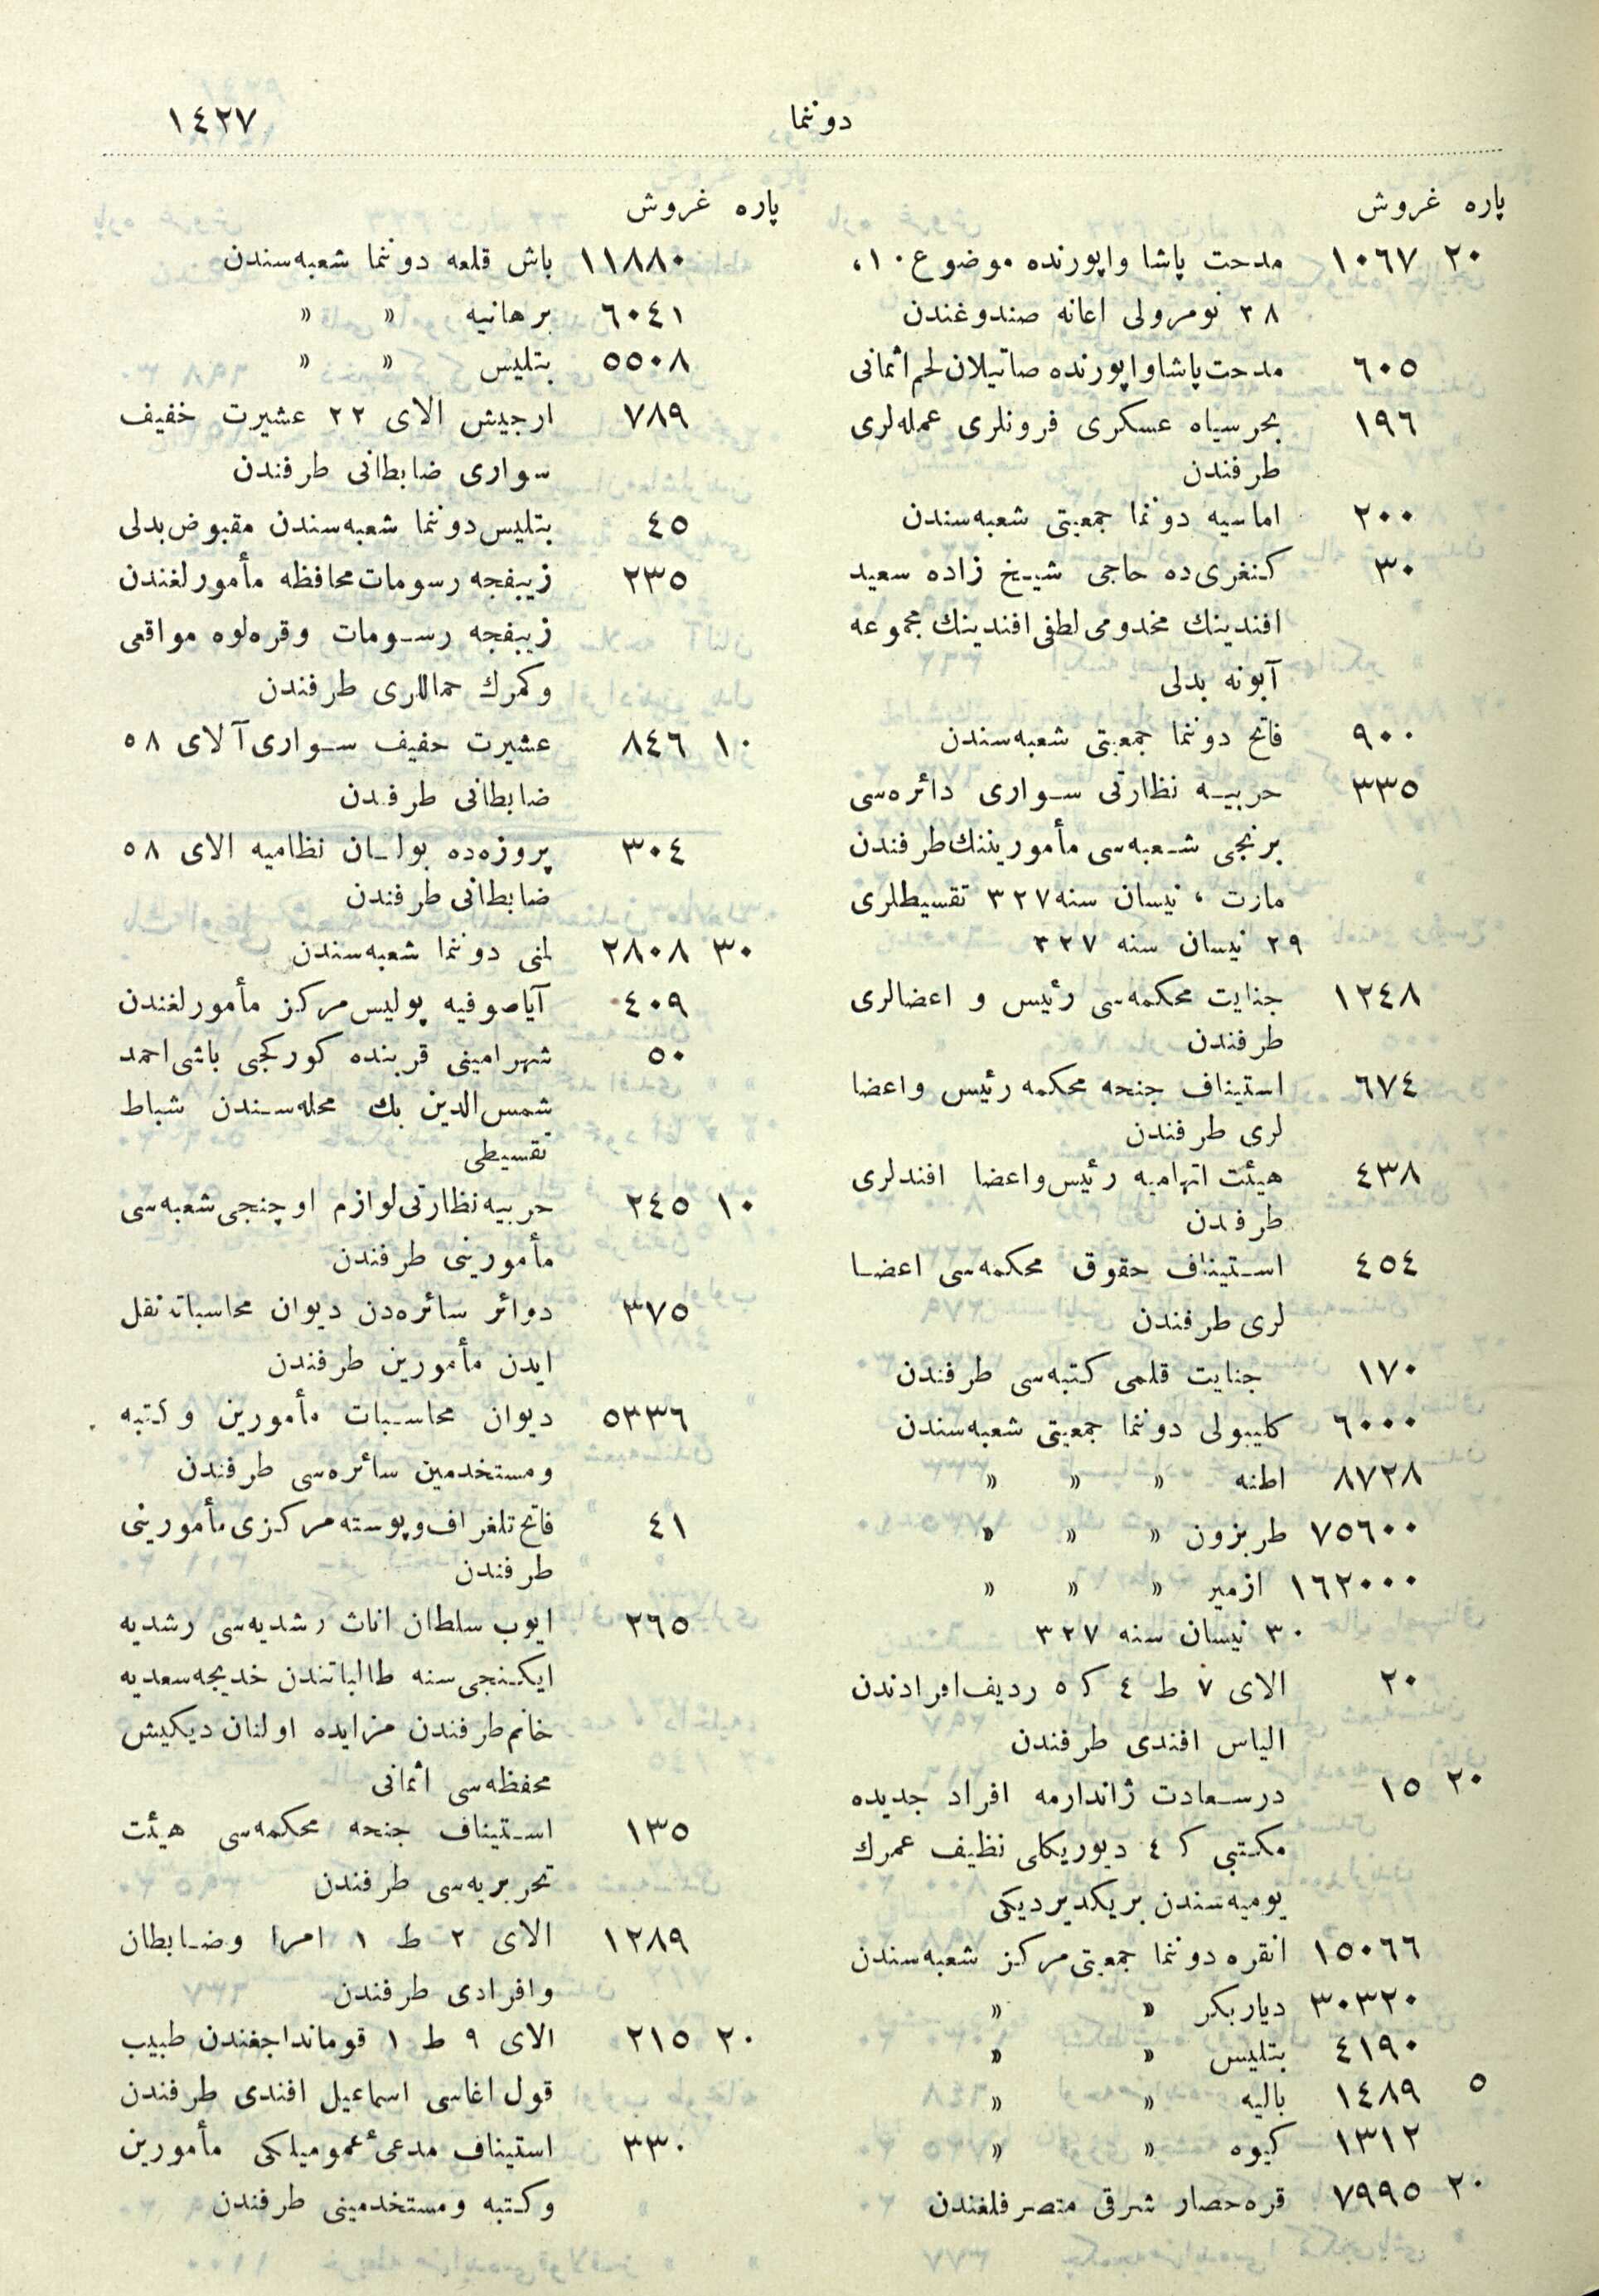 ١٤٢٧
دوننما
پاره غروش
٢٠ ١٠٦٧ مدحت پاشا واپورنده موضوع ١٠،
٣٨ نومرولی اعانه صندوغندن
٦٠٥ مدحت پاشا واپورنده صاتیلان لحم اثمانی
١٩٦ بحر سیاه عسکری فرونلری عمله‌لری
طرفندن
٢٠٠ اماسیه دوننما جمعیتی شعبه‌سندن
٣٠ کنغری‌ده حاجی شیخ زاده سعید
افندینك مخدومی لطفی افندینك مجموعه
آبونه بدلی
٩٠٠ فاتح دوننما جمعیتی شعبه‌سندن
٣٣٥ حربیه نظارتی سواری دائره‌سی
برنجی شعبه‌سی مأموریننك طرفندن
مارت ، نیسان سنه ٣٢٧ تقسیطلری
٢٩ نیسان سنه ٣٢٧
١٢٤٨ جنایت محکمه‌سی رئیس و اعضالری
طرفندن
٦٧٤ استیناف جنحه محکمه رئیس واعضا
لری طرفندن
٤٣٨ هیئت اتهامیه رئیس واعضا افندلری
طرفدن
٤٥٤ استیناف حقوق محکمه‌سی اعضا
لری طرفندن
١٧٠ جنایت قلمی کتبه‌سی طرفندن
٦٠٠٠ کلیبولی دوننما جمعیتی شعبه‌سندن
٨٧٢٨ اطنه » » »
٧٥٦٠٠ طربزون » » »
١٦٢٠٠٠ ازمیر » » »
٣٠ نیسان سنه ٣٢٧
٢٠ الای ٧ ط ٤ ك ٥ ردیف افرادندن
الیاس افندی طرفندن
٢٠ ١٥ درسعادت ژاندارمه افراد جدیده
مکتبی ك ٤ دیوریکلی نظیف عمرك
یومیه‌سندن بریکدیردیکی
١٥٠٦٦ انقره دوننما جمعیتی مرکز شعبه‌سندن
٣٠٣٢٠ دیاربکر » »
٤١٩٠ بتلیس » »
٥ ١٤٨٩ بالیه » »
١٣١٢ کیوه » »
٢٠ ٧٩٩٥ قره‌حصار شرقی متصرفلغندن
پاره غروش
١١٨٨٠ باش قلعه دوننما شعبه‌سندن
٦٠٤١ برهانیه » »
٥٥٠٨ بتلیس » »
٧٨٩ ارجیش الای ٢٢ عشیرت خفیف
سواری ضابطانی طرفندن
٤٥ بتلیس دوننما شعبه‌سندن مقبوض بدلی
٢٣٥ زیبفجه رسومات محافظه مأمورلغندن
زیبفجه رسومات وقره‌لوه مواقعی
وکمرك حماللری طرفندن
١٠ ٨٤٦ عشیرت خفیف سواری آلای ٥٨
ضابطانی طرفدن
٣٠٤ پروزه‌ده بولنان نظامیه الای ٥٨
ضابطانی طرفندن
٣٠ ٢٨٠٨ لمنی دوننما شعبه‌سندن
٤٠٩ آیاصوفیه پولیس مرکز مأمورلغندن
٥٠ شهرامینی قربنده کورکجی باشی احمد
شمس‌الدین بك محله‌سندن شباط
تقسیطی
١٠ ٢٤٥ حربیه نظارتی لوازم اوچنجی شعبه‌سی
مأمورینی طرفندن
٣٧٥ دوائر سائره‌دن دیوان محاسباته نقل
ایدن مأمورین طرفندن
٥٣٣٦ دیوان محاسبات مأمورین وکتبه
ومستخدمین سائره‌سی طرفندن
٤١ فاتح تلغراف وپوسته مرکزی مأمورینی
طرفندن
٢٦٥ ایوب سلطان اناث رشدیه‌سی رشدیه
ایکنجی سنه طالباتندن خدیجه سعدیه
خانم طرفندن مزایده اولنان دیکیش
محفظه‌سی اثمانی
١٣٥ استیناف جنحه محکمه‌سی هیئت
تحریریه‌سی طرفندن
١٢٨٩ الای ٢ ط ١ امرا وضابطان
وافرادی طرفندن
٢٠ ٢١٥ الای ٩ ط ١ قوماندانجغندن طبیب
قول اغاسی اسماعیل افندی طرفندن
٣٣٠ استیناف مدعیٔ عمومیلکی مأمورین
وکتبه ومستخدمینی طرفندن